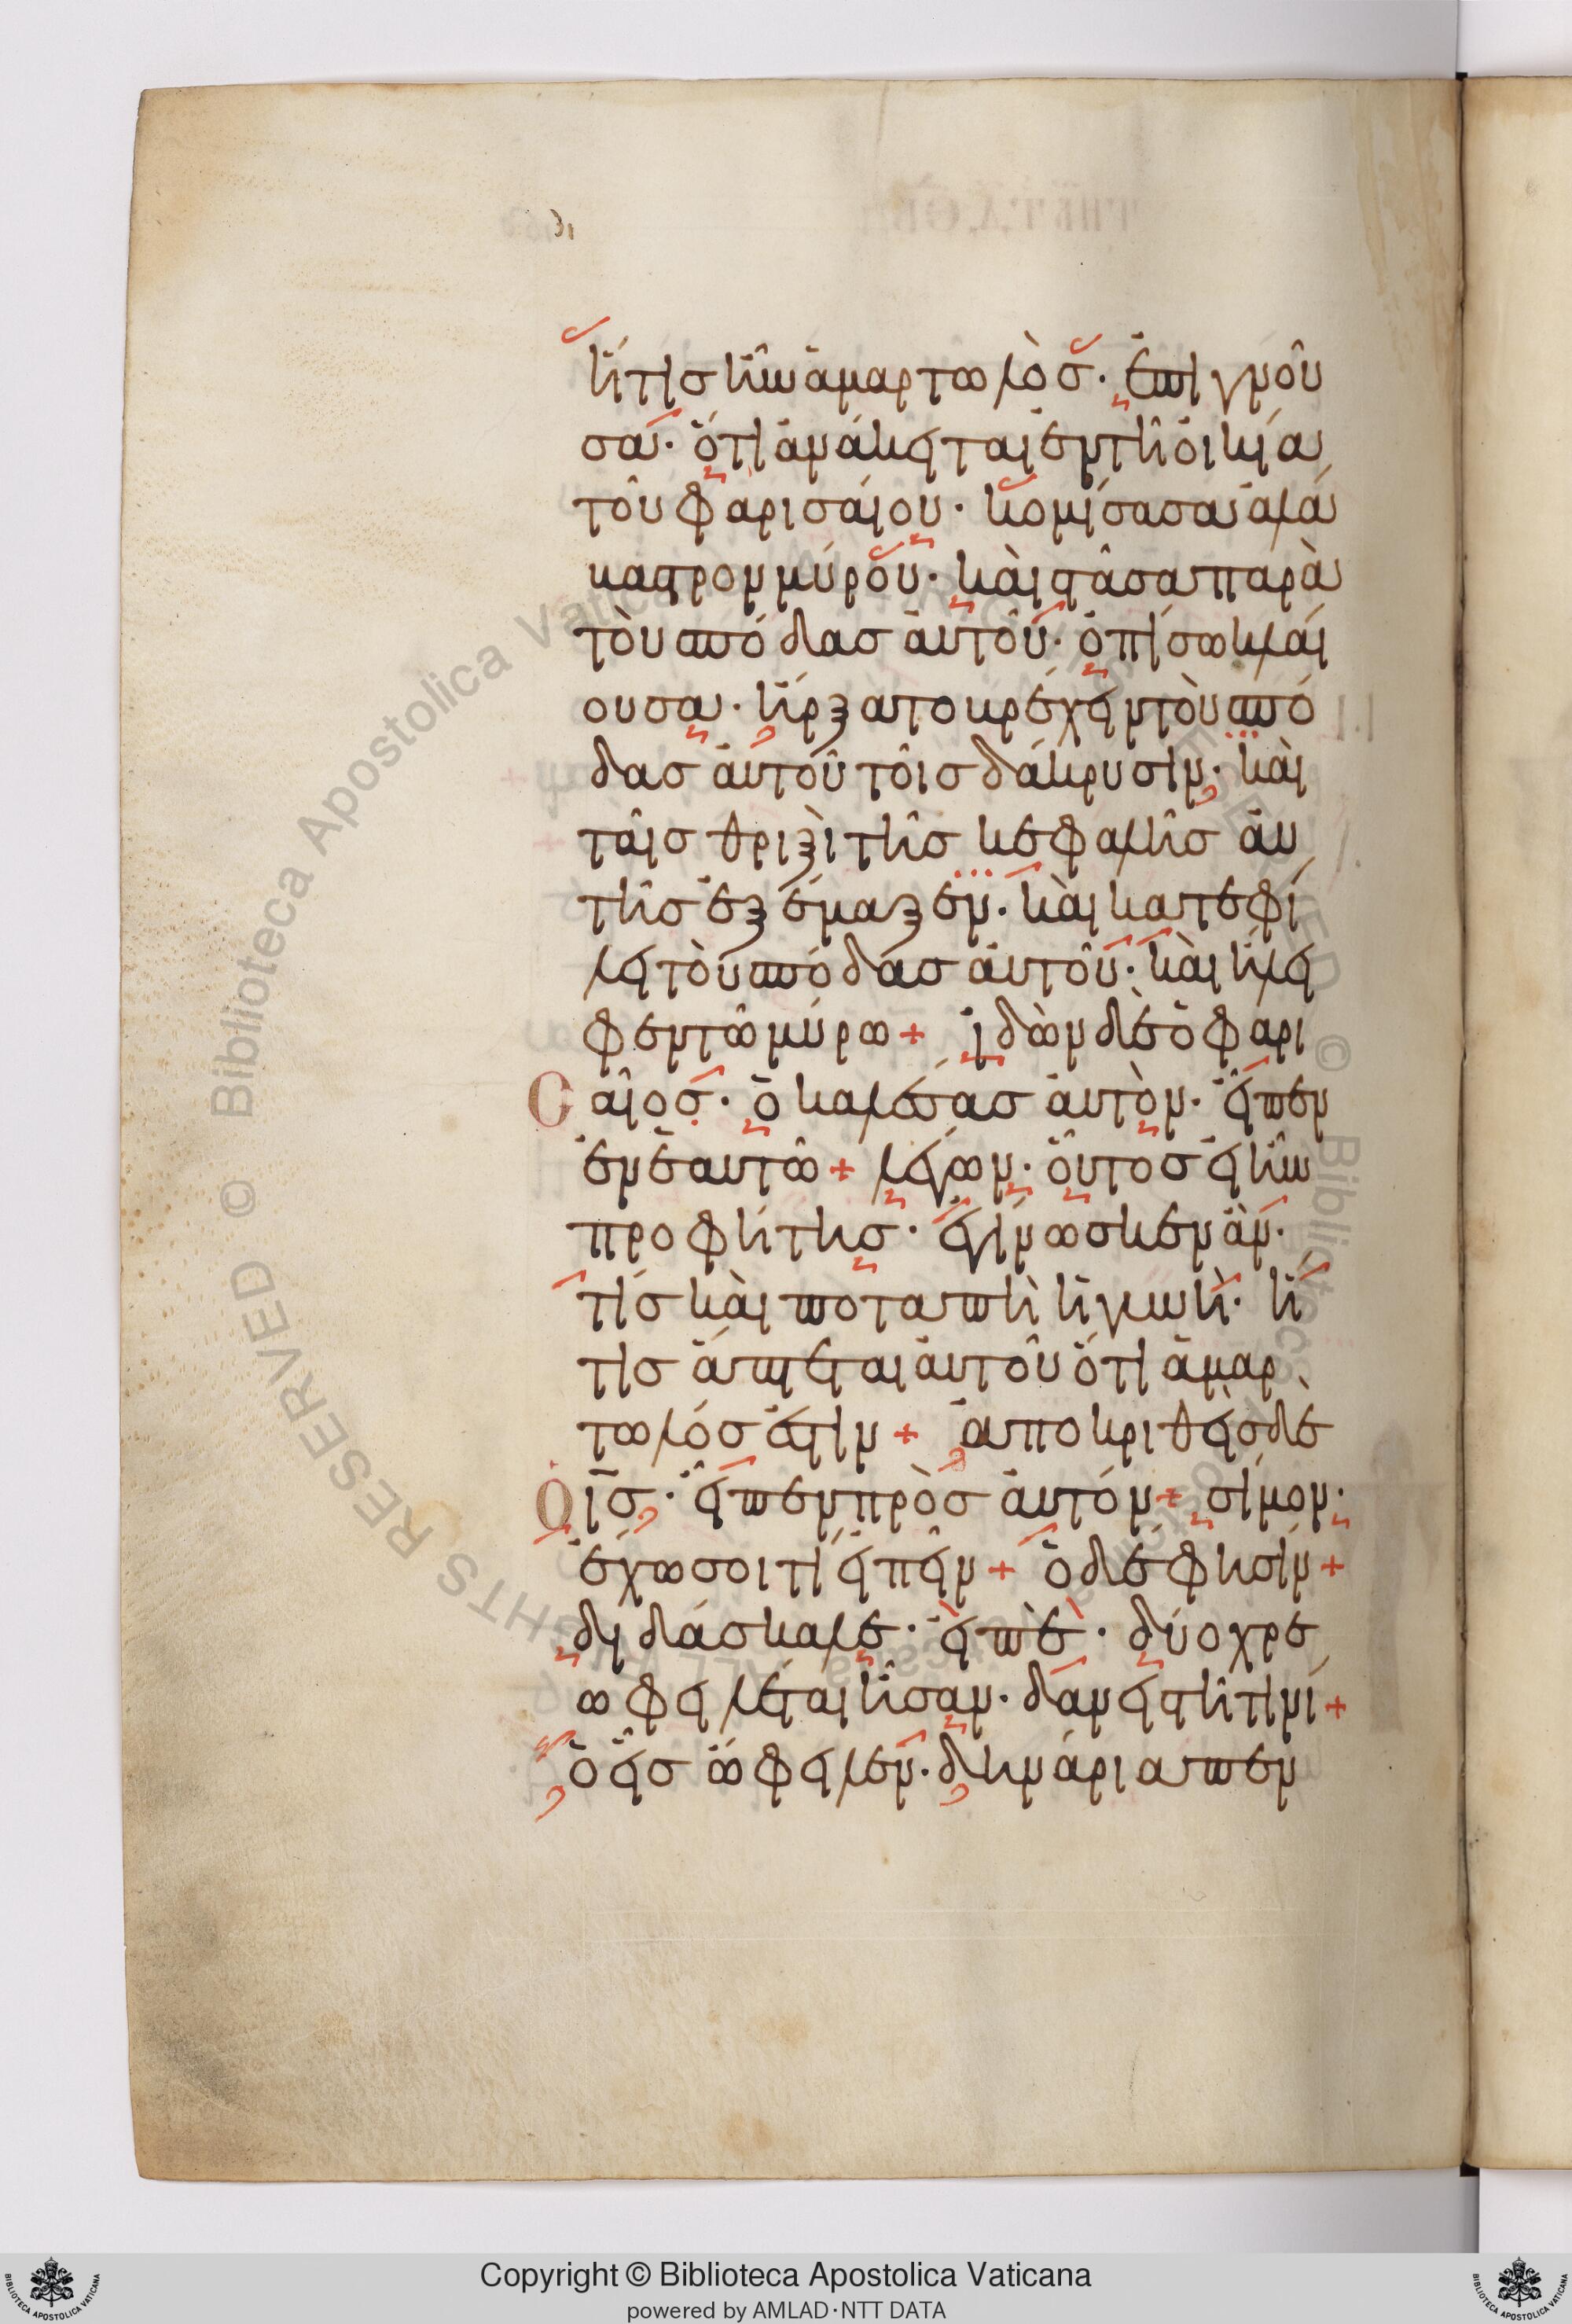 ἥτις ἦν ἁμαρτωλὸς· ἐπιγνοῦ
σα· ὅτι ἀνάκειται ἐν τῆ οἰκία
τοῦ φαρισαίου· κομίσασα ἀλά
καστρον μύρου· καὶ στᾶσα παρὰ
τοὺς πόδας αὐτοῦ· ὀπίσω κλαί
ουσα· ἤρξατο βρέχειν τοὺς πό
δας αὐτοῦ τοῖς δάκρυσιν· καὶ
ταῖς θριξὶ τῆς κεφαλῆς αὐ
τῆς ἐξέμαξεν· καὶ κατεφί
λει τοὺς πόδας αὐτοῦ· καὶ ἤλει
φεν τῶ μύρω + ἰδὼν δὲ ὁ φαρι
Cαῖος· ὁ καλέσας αὐτὸν· εἶπεν
ἐν ἑαυτῶ + λέγων· οὗτος εἰ ἦν
προφήτης· ἐγίνωσκεν ἂν·
τίς καὶ ποταπὴ ἡ γυνὴ· ἥ
τις ἅπτεται αὐτοῦ ὅτι ἁμαρ
τωλός ἐστιν + ἀποκριθεὶς δὲ
Ὁ ις· εἶπεν πρὸς αὐτόν + σίμον·
ἔχω σοι τί εἰπεῖν + ὁ δέ φησίν +
διδάσκαλε· εἰπὲ· δύο χρε
ωφειλέται ἦσαν· δανειστῆ τινί +
ὁ εἷς ὤφειλεν· δηνάρια πεν
Copyright © Biblioteca Apostolica Vaticana
powered by AMLAD·NTT DATA